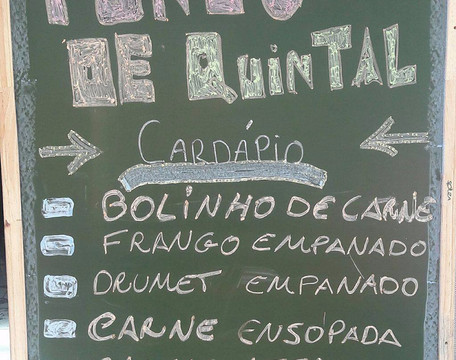 DE QUINTAL
CARDÁPIO
BOLINHO DE CARNE
FRANGO EMPANADO
DRUMET EMPANADO
CARNE ENSOPADA